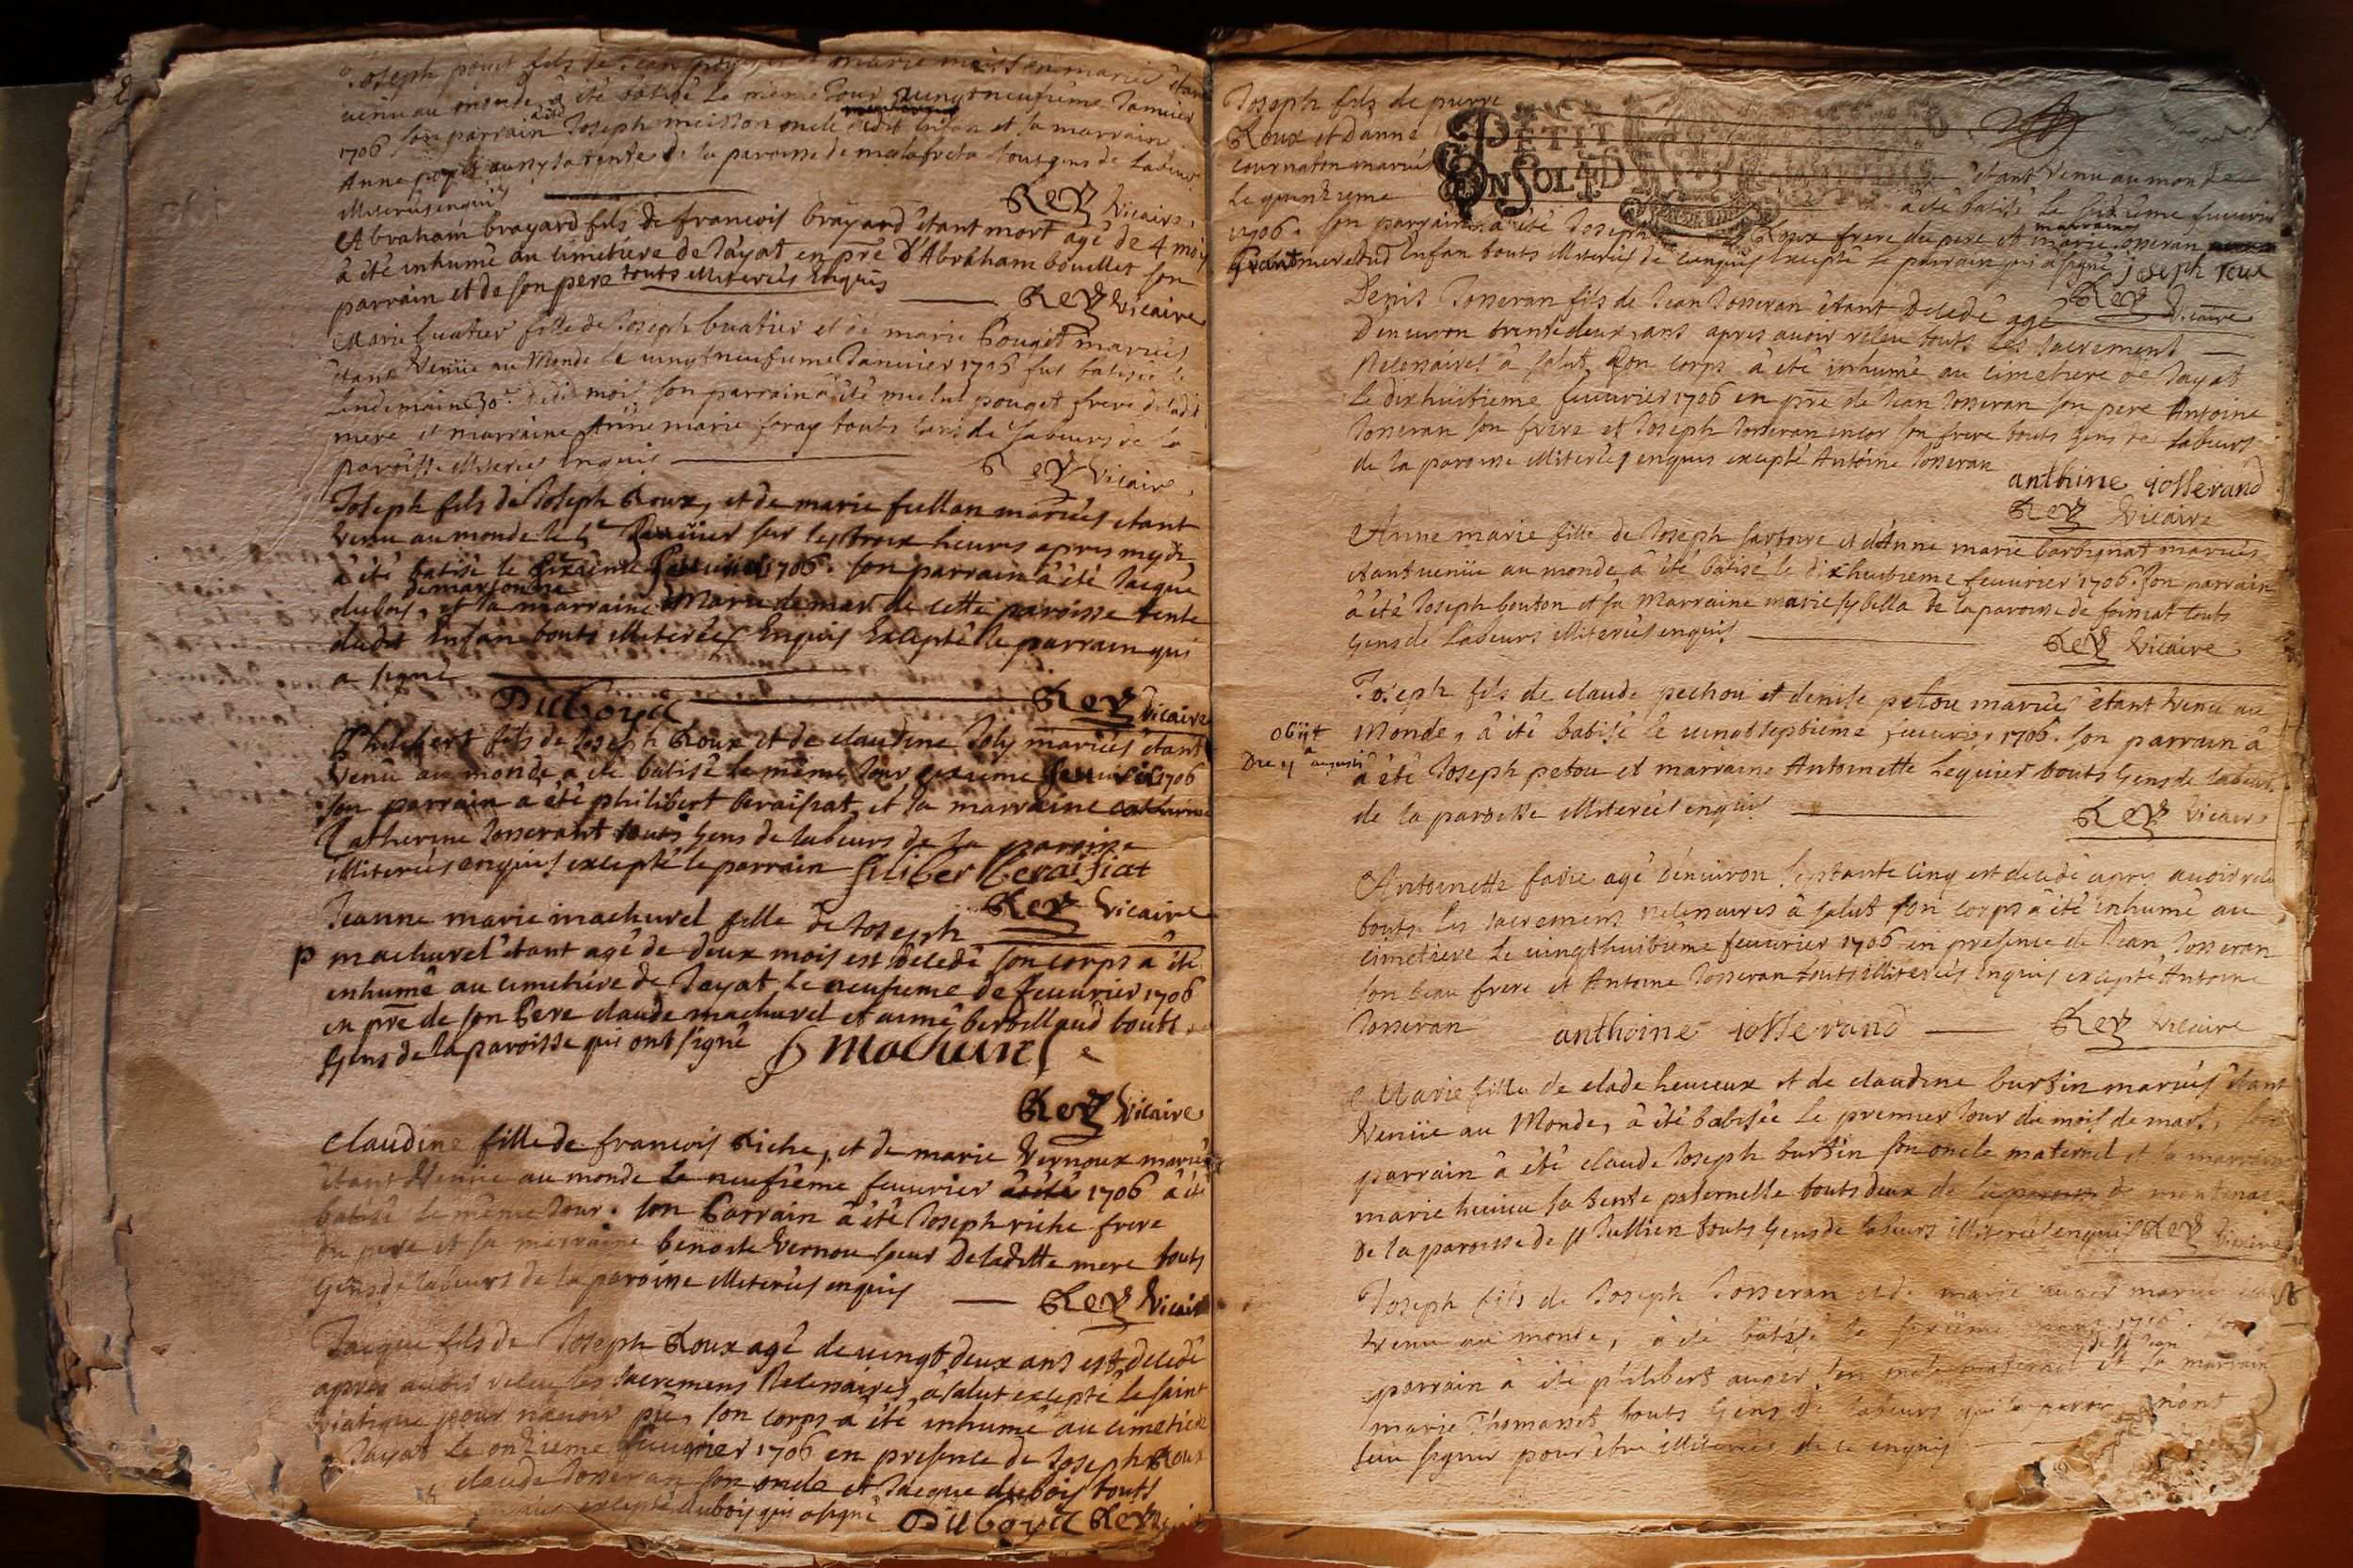 Joseph fils de Jean marie
venu au monde a été batisé le même Jour vingtneufième Janvier
1706 son parrain a été Joseph oncle dudit Enfan et sa marraine
Anne sa tente de la paroisse de touts gens de Labeur
illiterés enquis Rey Vicaire
Abraham brayard fils de francois brayard êtant mort agé de 4 mois
â êté inhumé au cimetiere de Jayat en pre d'Abraham bouillet son
parrain et de son pere touts illiterés Enquis Rey Vicaire
Marie buatier fille de Joseph buatier et de marie Pouget mariés
êtant Venüe au Monde le vingtneufieme Janvier 1706 fut batisée le
Lendemain 30e dudit mois son parrain â êté pouget frere de ladit
mere et marraine Anne marie foray touts Gens de Labeurs de la
paroisse illiterés Enquis Rey Vicaire
Joseph fils de Joseph Roux, et de marie fullon mariés etant
Venu au monde le 5e sur les trois heures apres mydi
â êté batisé le sixième 1706. son parrain â êté Jacque
dubois, et sa marraine Marie demar de cette paroisse tente
dudit Enfan touts illiterées Enquis Excepté le parrain qui
a signé
Duboyst Rey Vicaire
Philibert fils de Joseph Roux et de claudine Joly mariés êtant
Venu au monde a êté batisé le même Jour sixieme feuurier 1706
son parrain a êté philibert beraisiat et sa marraine
Catherine Josserant touts Gens de Labeurs de la paroisse
illiterés enquis excepté le parrain filiber beraisiat
Rey Vicaire
Jeanne marie machurel fille de Joseph
p machurel êtant agé de deux mois est décedé son corps a êté
inhumé au cimetiére de Jayat le neufieme de feuurier 1706
en pre de son Pere claude machurel et aimé berbilland touts
Gens de la paroisse qui ont signé machurel
Rey Vicaire
Claudine fille de francois Riche, et de marie Vernoux mariés
êtant Venüe au monde le neufième feuurier 1706 â êté
batisé le même Jour. son Parrain â êté Joseph riche frere
du pere et sa merraine benoite Vernou sœur de ladille mere touts
Gens de Labeurs de la paroisse illiterés enquis Rey Vicaire
Jacque fils de Joseph Roux agé de vingt deux ans est decedé
apres avoir receu les sacremens Necessaires a salut excepté le saint
Viatique pour n'auoir pu, son corps a êté inhumé au cimetiere
Jayat Le onzieme feuurier 1706 en presence de Joseph Roux
claude Josseran son oncle et Jacque dubois touts
excepté dubois qui a signé Duboyst Rey
Joseph fils de pierre
Roux et d'anne
cournaton mariés
PETIT
êtant Venu au monde
Le quinzieme
EN SOL
â êté batisé Le sezieme feuurier
1706. son parrain â êté Joseph Roux frere du pere et marraine marie Josseran
Grandmere dud Enfan touts illiterés de Enquis Excepté le parrain qui a signé joseph roux
Rey Vicaire
Denis Josseran fils de Jean Josseran êtant decedé agé
d'enuiron trentedeux ans apres auoir receu touts les sacrement
Necessaires â salut, son corps â êté inhumé au cimetiere de Jayat
Le dixhuitieme feuurier 1706 en pre de Jean Josseran son pere Antoine
Josseran son frere et Joseph Josseran encor son frere touts Gens de Labeurs
de la paroisse illiterés enquis excepté Antoine Josseran
anthoine iosserand
Rey Vicaire
Anne marie fille de Joseph sartoire et d'Anne marie barbignat mariés
êtant venüe au monde â êté batisé le dixhuitieme feuurier 1706. son parrain
â êté Joseph bouton et sa Marraine marie sybella de la paroisse de foissiat touts
Gens de Labeurs illiterés enquis Rey Vicaire
Joseph fils de claude pechou et denise petou mariés êtant Venu au
obiit Monde, â êté batisé le vingtseptieme feuurier 1706. son parrain â
Die 11 augusti â êté Joseph petou et marraine Antoinette Lequier touts Gens de Labeurs
de la paroisse illiterés enquis Rey Vicaire
Antoinette faire agé d'enuiron septante cinq est decedé apres auoir receu
touts les sacremens necessaires â salut son corps â êté inhumé au
cimetiere Le vingthuitiéme feuurier 1706 en presence de Jean Josseran
son beau frere et Antoine Josseran touts illiterés enquis excepté Antoine
Josseran anthoine iosserand Rey Vicaire
Marie fille de clade heureux et de claudine burtin mariés êtant
Venüe au Monde, â êté batisée Le premier Jour du mois de mars,
parrain â êté claude Joseph burtin son oncle maternel et sa marraine
marie sa tente paternelle touts deux de
De la paroisse de st Jullien touts Gens de Labeurs illiterés enquis Rey Vicaire
Joseph fils de Joseph Josseran et de marie auger mariés
Venu au monde, â êté batisé le 1706
parrain â êté philibert auger son oncle maternel et sa marraine
marie Thomasset touts Gens de Labeurs n'ont
sceu signer pour être illiterés de ce enquis